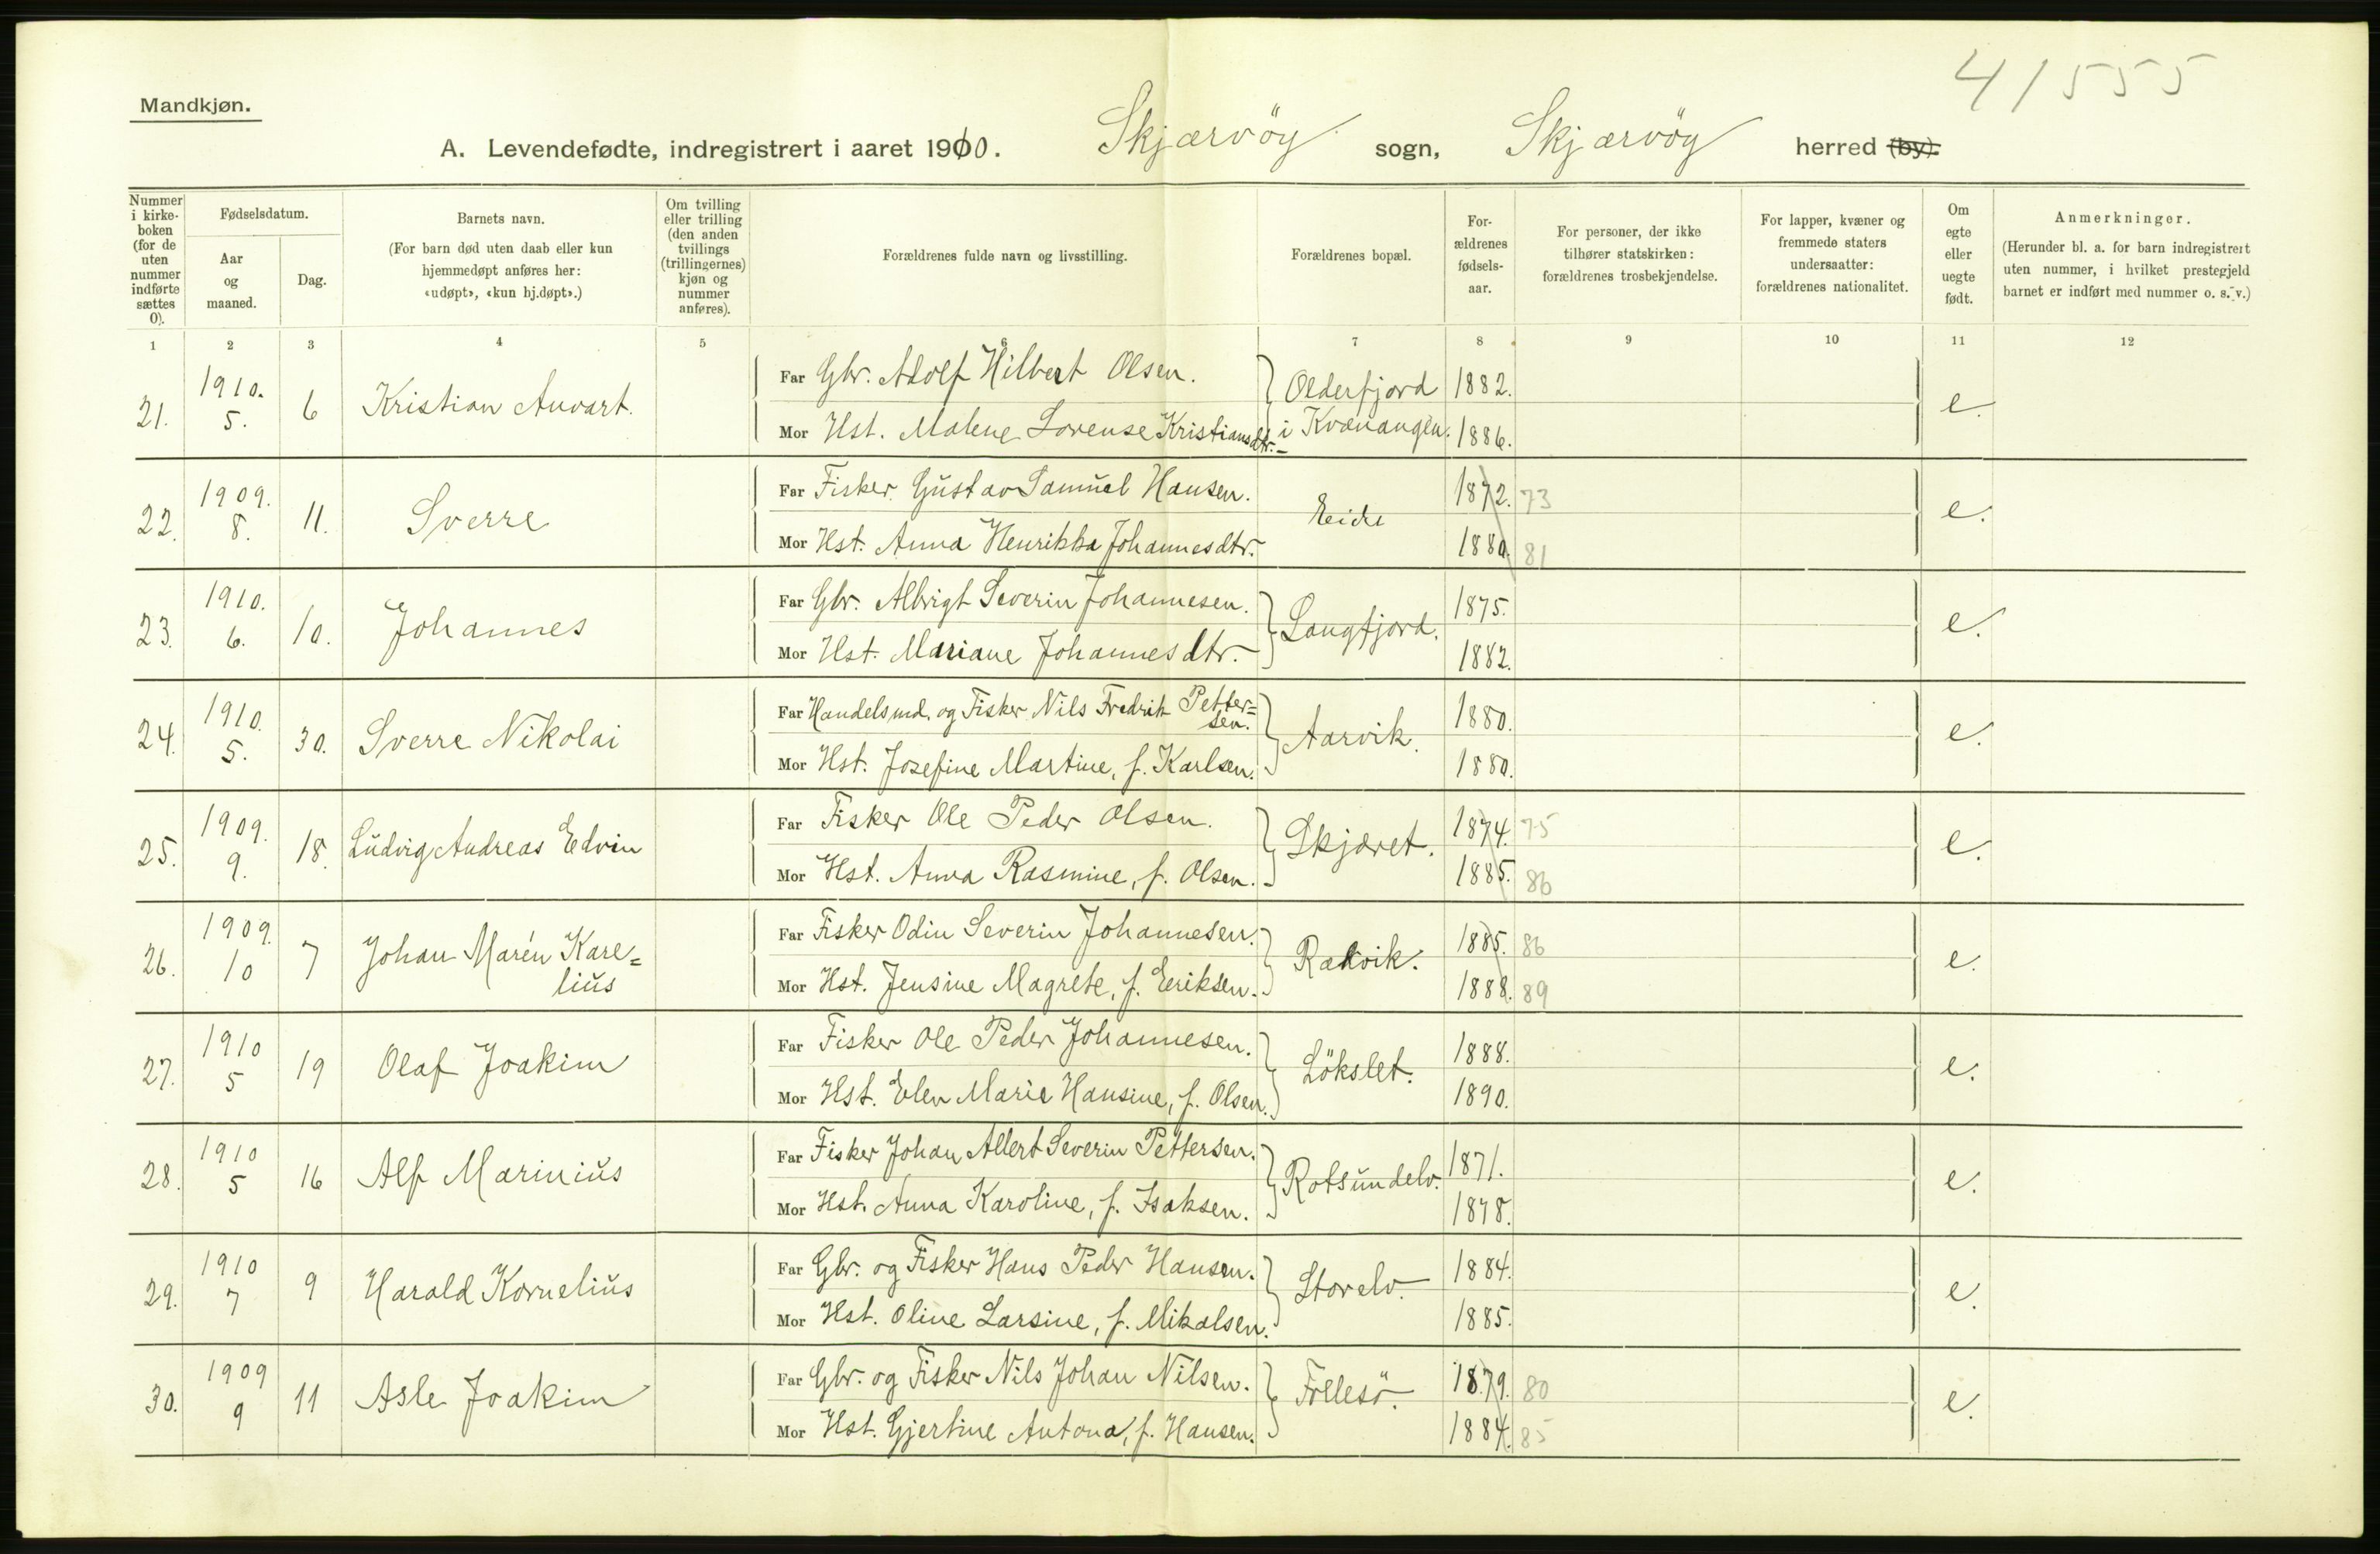 41555
Mandkjøn.
A. Levendefødte, indregistrert i aaret 1910. Skjærvöy sogn, Skjærvöy herred (by).
Nummer i kirke-boken (for de uten nummer indførte sættes 0).
Fødselsdatum.
Aar og maaned.
Dag.
Barnets navn.
(For barn død uten daab eller kun hjemmedøpt anføres her: «udøpt», «kun hj.døpt».)
Om tvilling eller trilling (den anden tvillings (trillingernes) kjøn og nummer anføres).
Forældrenes fulde navn og livsstilling.
Forældrenes bopæl.
For-ældrenes fødsels-aar.
For personer, der ikke tilhører statskirken: forældrenes trosbekjendelse.
For lapper, kvæner og fremmede staters undersaatter: forældrenes nationalitet.
Om egte eller uegte født.
Anmerkninger.
(Herunder bl. a. for barn indregistrert uten nummer, i hvilket prestegjeld barnet er indført med nummer o. s. v.)
1 2 3 4 5 6 7 8 9 10 11 12
21. 1910. 5. 6 Kristian Anvart. Far Gbr. Adolf Hilbert Olsen. Olderfjord 1882. e.
Mor Hst. Malene Lorense Kristiansdtr. i Kvænangen. 1886.
22. 1909. 8. 11. Sverre Far Fisker Gustav Samuel Hansen. Eide 1872. 73 e.
Mor Hst. Anna Henrikka Johannesdtr. 1880. 81
23. 1910. 6. 10. Johannes Far Gbr. Albrigt Severin Johannesen. Langfjord. 1875. e.
Mor Hst. Mariane Johannesdtr. 1882.
24. 1910. 5. 30. Sverre Nikolai Far Handelsmd. og Fisker Nils Fredrik Petter=sen. Aarvik. 1880. e.
Mor Hst. Josefine Martine, f. Karlsen. 1880.
25. 1909. 9. 18. Ludvig Andreas Edvin Far Fisker Ole Peder Olsen. Skjæret. 1874. 75 e.
Mor Hst. Anna Rasmine, f. Olsen. 1885. 86
26. 1909. 10 7 Johan Marén Kare=lius Far Fisker Odin Severin Johannesen. Rakvik. 1885. 86 e.
Mor Hst. Jensine Magrete, f. Eeriksen. 1888. 89
27. 1910 5 19 Olaf Joakim Far Fisker Ole Peder Johannesen. Lökslet. 1888. e.
Mor Hst. Elen Marie Hansine, f. Olsen. 1890.
28. 1910 5 16 Alf Marinius Far Fisker Johan Albert Severin Pettersen. Rotsundelv. 1871. e.
Mor Hst. Anna Karoline, f. Isaksen. 1878.
29. 1910 7 9 Harald Kornelius Far Gbr. og Fisker Hans Peder Hansen. Storelv. 1884. e.
Mor Hst. Oline Larsine, f. Mikalsen. 1885.
30. 1909 9 11 Asle Joakim Far Gbr. og Fisker Nils Johan Nilsen. Follesö. 1879. 80 e.
Mor Hst. Gjertine Antona, f. Hansen. 1884. 85